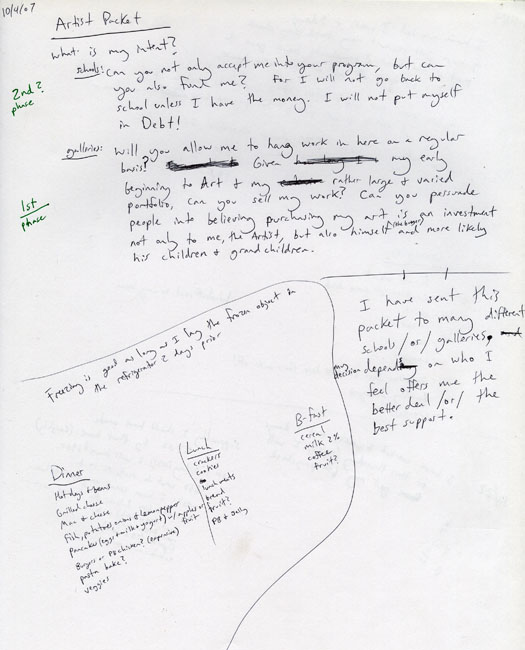 10/4/07
Artist Packet
what is my intent?
schools: Can you not only accept me into your program, but can
you also fund me? For I will not go back to
school unless I have the money. I will not put myself
in Debt!
2nd?
phase
galleries: Will you allow me to hang work in here on a regular
basis? Given my early
beginning to Art & my rather large & varied
portfolio, can you sell my work? Can you persuade
people into believing purchasing my art is an investment
not only to me, the Artist, but also himself (the buyer) and more likely
his children & grandchildren.
1st
phase
I have sent this
packet to many different
schools /or/ galleries,
my decision depends on who I
feel offers me the
better deal /or/ the
best support.
Freezing is good as long as I lay the frozen object in
the refrigerator 2 days prior
B-fast
cereal
milk 2%
coffee
fruit?
Lunch
crackers
cookies
lunch meats
bread
fruit?
PB & Jelly
Dinner
Hotdogs & beans
Grilled cheese
Mac & cheese
Fish, potatoes, onions & lemon pepper
pancakes (eggs & milk & yogurt) w/ apples or fruit
Burgers or PB chicken? (expensive)
pasta bake?
veggies